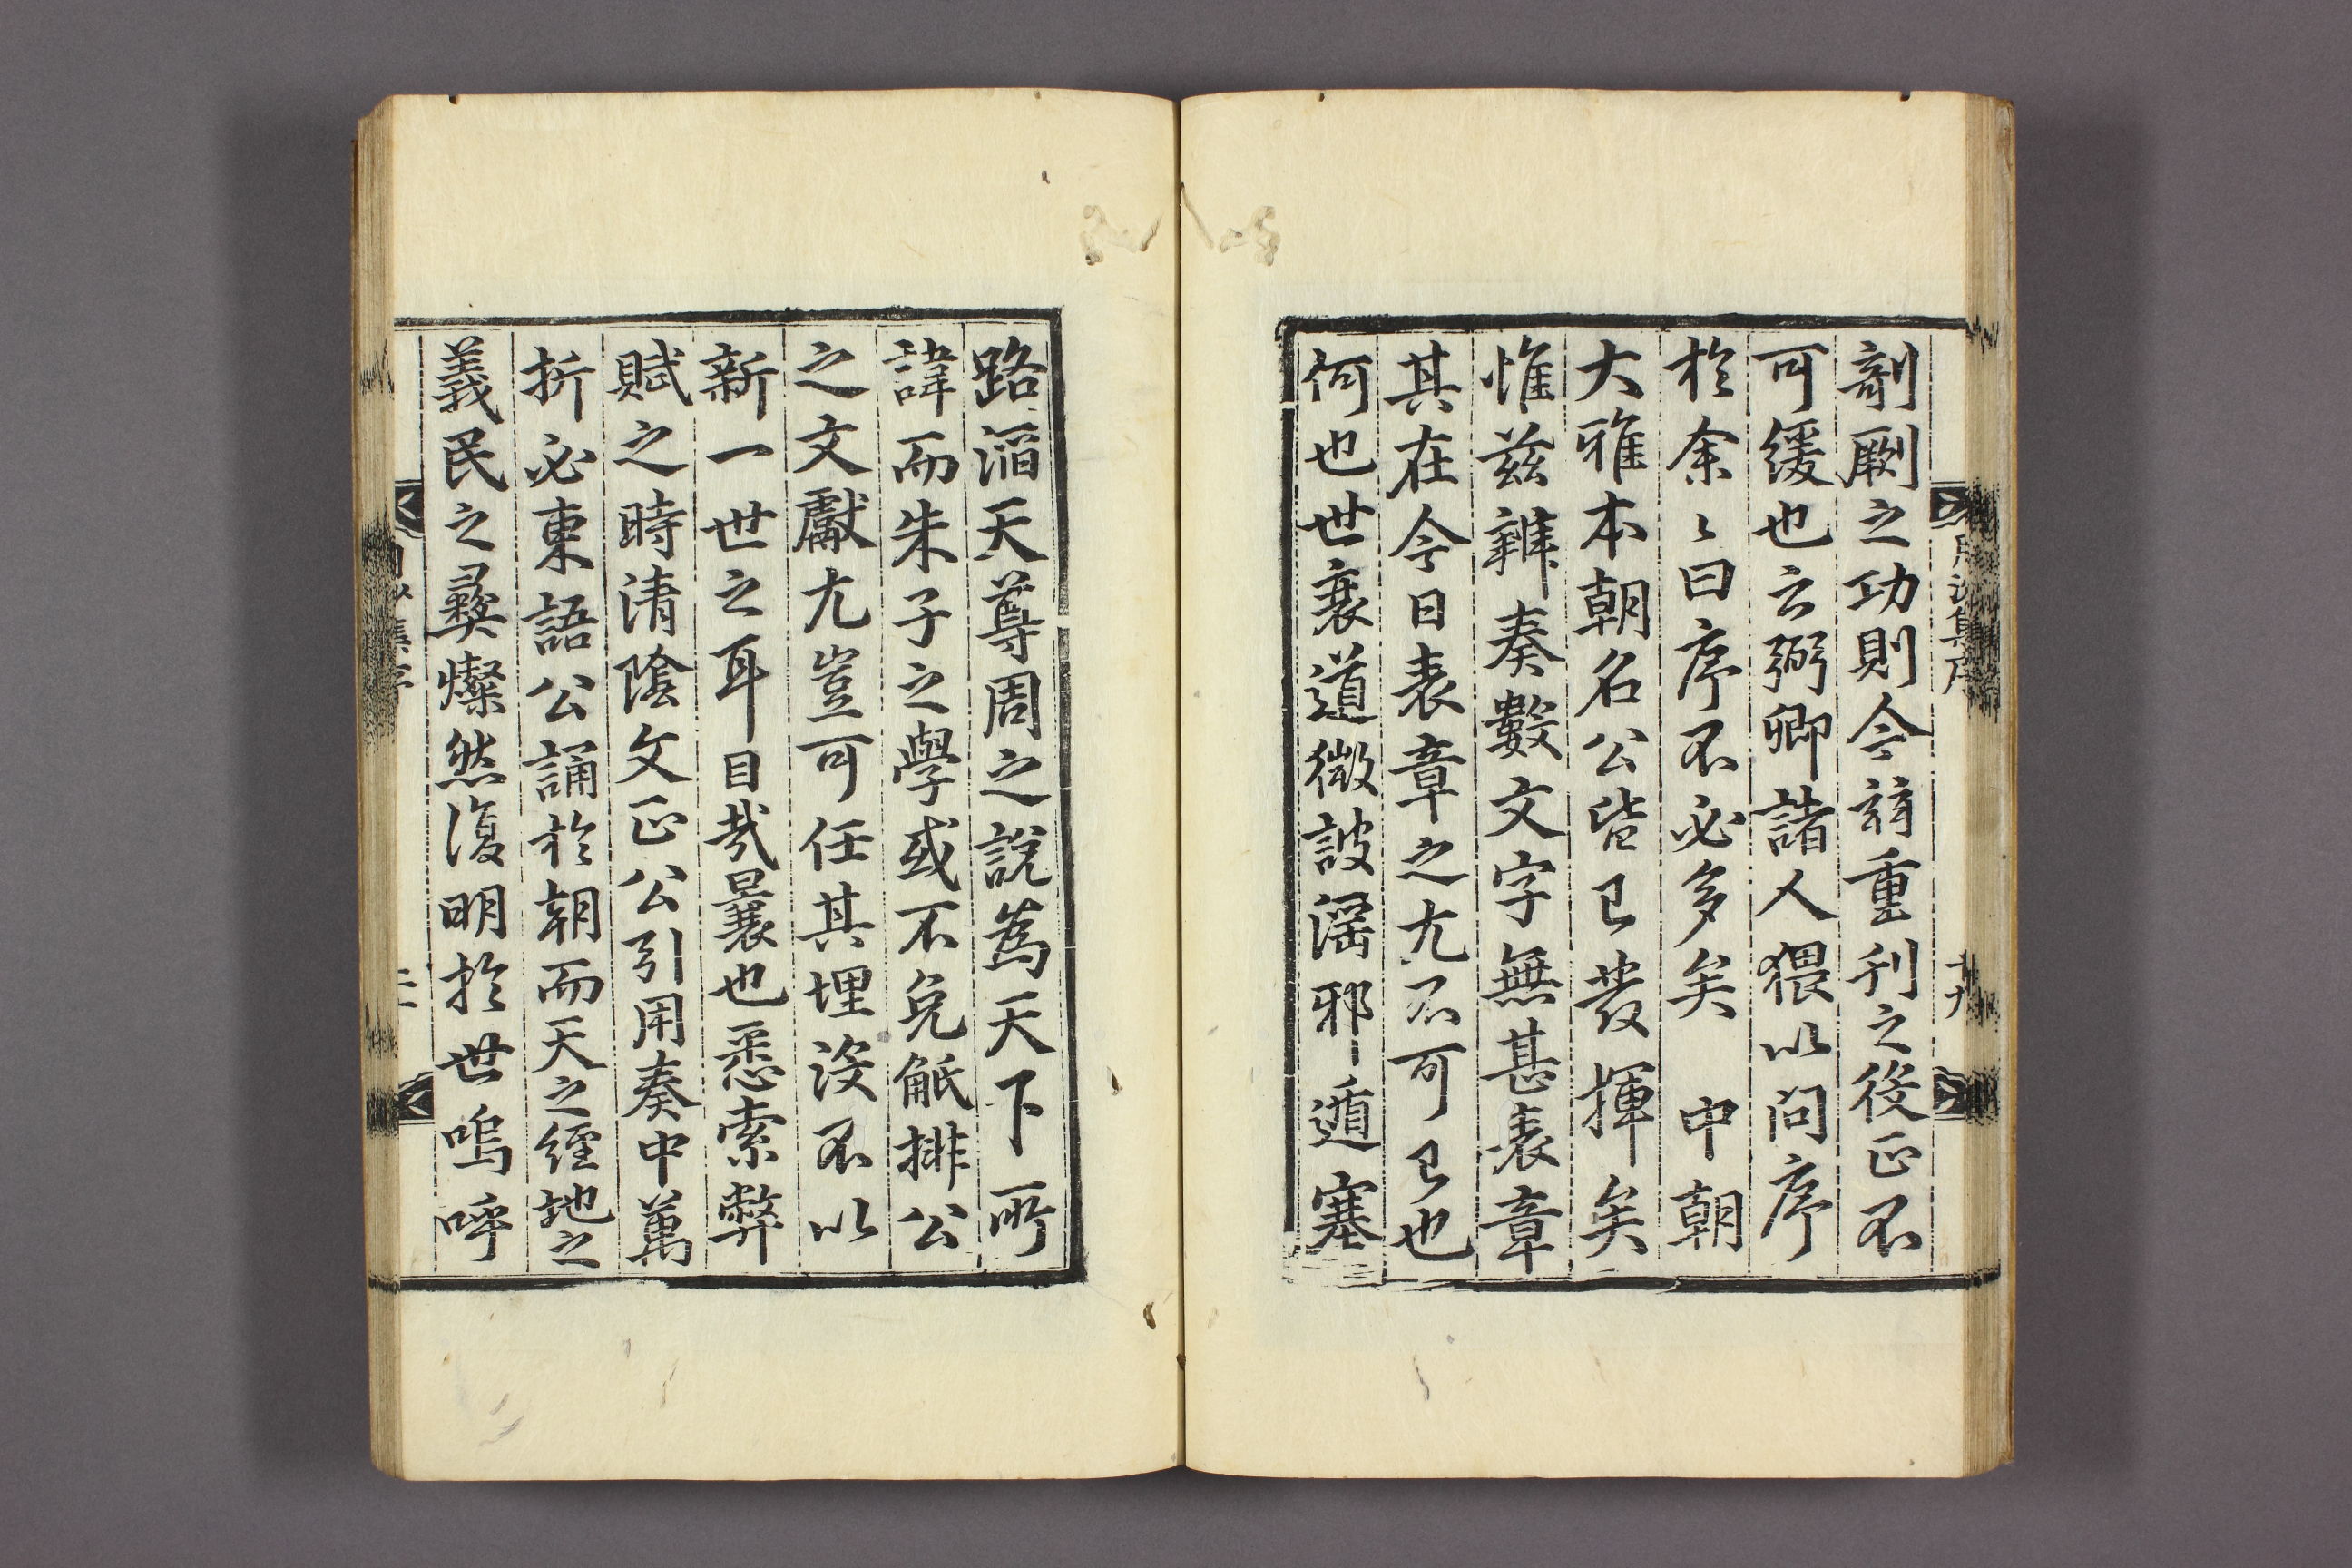 剞劂之功則今玆重刊之後正不
可緩也云弼卿諸人猥以問序
於余〻曰序不必多矣 中朝
大雅本朝名公皆已發揮矣
惟玆辨奏數文字無甚表章
其在今日表章之尤不可已也
何也世衰道微詖淫邪遁塞
路滔天尊周之說爲天下所
諱而朱子之學或不免觝排公
之文獻尤豈可任其埋沒不以
新一世之耳目哉曩也悉索弊
賦之時淸陰文正公引用奏中萬
折必東語公誦於朝而天之經地之
義民之彜燦然復明於世嗚呼